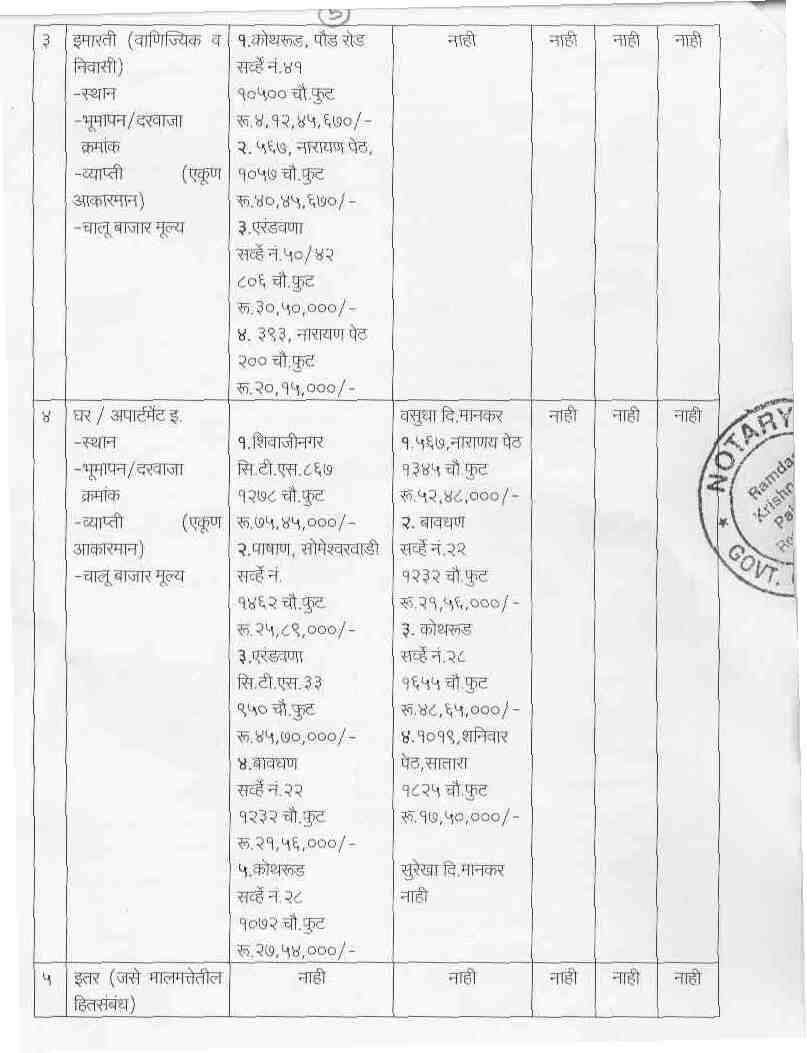 ५
३
इमारती (वाणिज्यिक व
निवासी)
-स्थान
-भूमापन/दरवाजा
क्रमांक
-व्याप्ती (एकूण
आकारमान)
-चालू बाजार मूल्य
१.कोथरूड, पौड रोड
सर्व्हे नं.४१
१०५०० चौ.फुट
रू.४,१२,४५,६७०/-
२. ५६७, नारायण पेठ,
१०५७ चौ.फुट
रू.४०,४५,६७०/-
३.एरंडवणा
सर्व्हे नं.५०/४२
८०६ चौ.फुट
रू.३०,५०,०००/-
४. ३९३, नारायण पेठ
२०० चौ.फुट
रू.२०,१५,०००/-
नाही
नाही
नाही
नाही
४
घर / अपार्टमेंट इ.
-स्थान
-भूमापन/दरवाजा
क्रमांक
-व्याप्ती (एकूण
आकारमान)
-चालू बाजार मूल्य
१.शिवाजीनगर
सि.टी.एस.८६७
१२७८ चौ.फुट
रू.७५,४५,०००/-
२.पाषाण, सोमेश्वरवाडी
सर्व्हे नं.
१४६२ चौ.फुट
रू.२५,८९,०००/-
३.एरंडवणा
सि.टी.एस.३३
९५० चौ.फुट
रू.४५,७०,०००/-
४.बावधण
सर्व्हे नं.२२
१२३२ चौ.फुट
रू.२१,५६,०००/-
५.कोथरूड
सर्व्हे नं.२८
१०७२ चौ.फुट
रू.२७,५४,०००/-
वसुधा दि.मानकर
१.५६७,नाराणय पेठ
१३४५ चौ.फुट
रू.५२,४८,०००/-
२. बावधण
सर्व्हे नं.२२
१२३२ चौ.फुट
रू.२१,५६,०००/-
३. कोथरूड
सर्व्हे नं.२८
१६५५ चौ.फुट
रू.४८,६५,०००/-
४.१०१९,शनिवार
पेठ,सातारा
१८२५ चौ.फुट
रू.१७,५०,०००/-
सुरेखा दि.मानकर
नाही
नाही
नाही
नाही
५
इतर (जसे मालमत्तेतील
हितसंबंध)
नाही
नाही
नाही
नाही
नाही
NOTARY
Ramdas
GOVT.